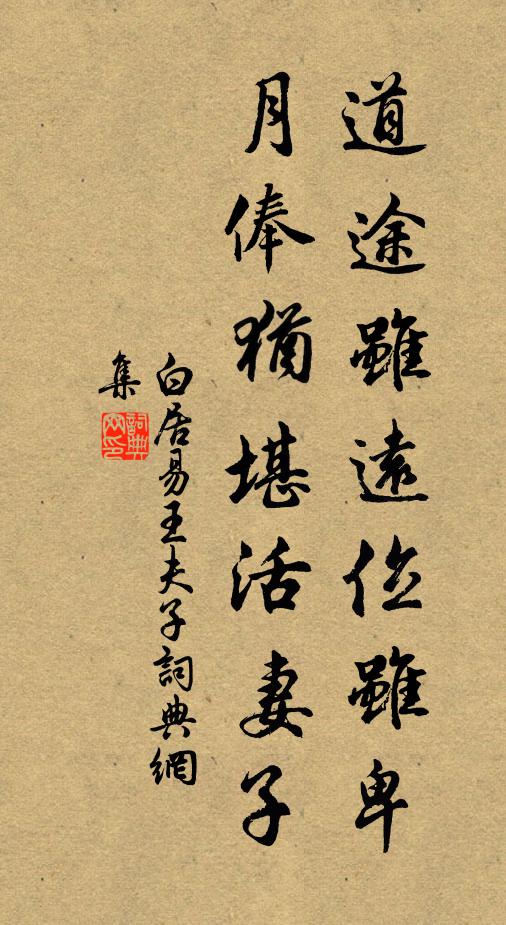 道途雖遠位雖卑
月俸猶堪活妻子
白居易王夫子詞典網
集
詞典
网印